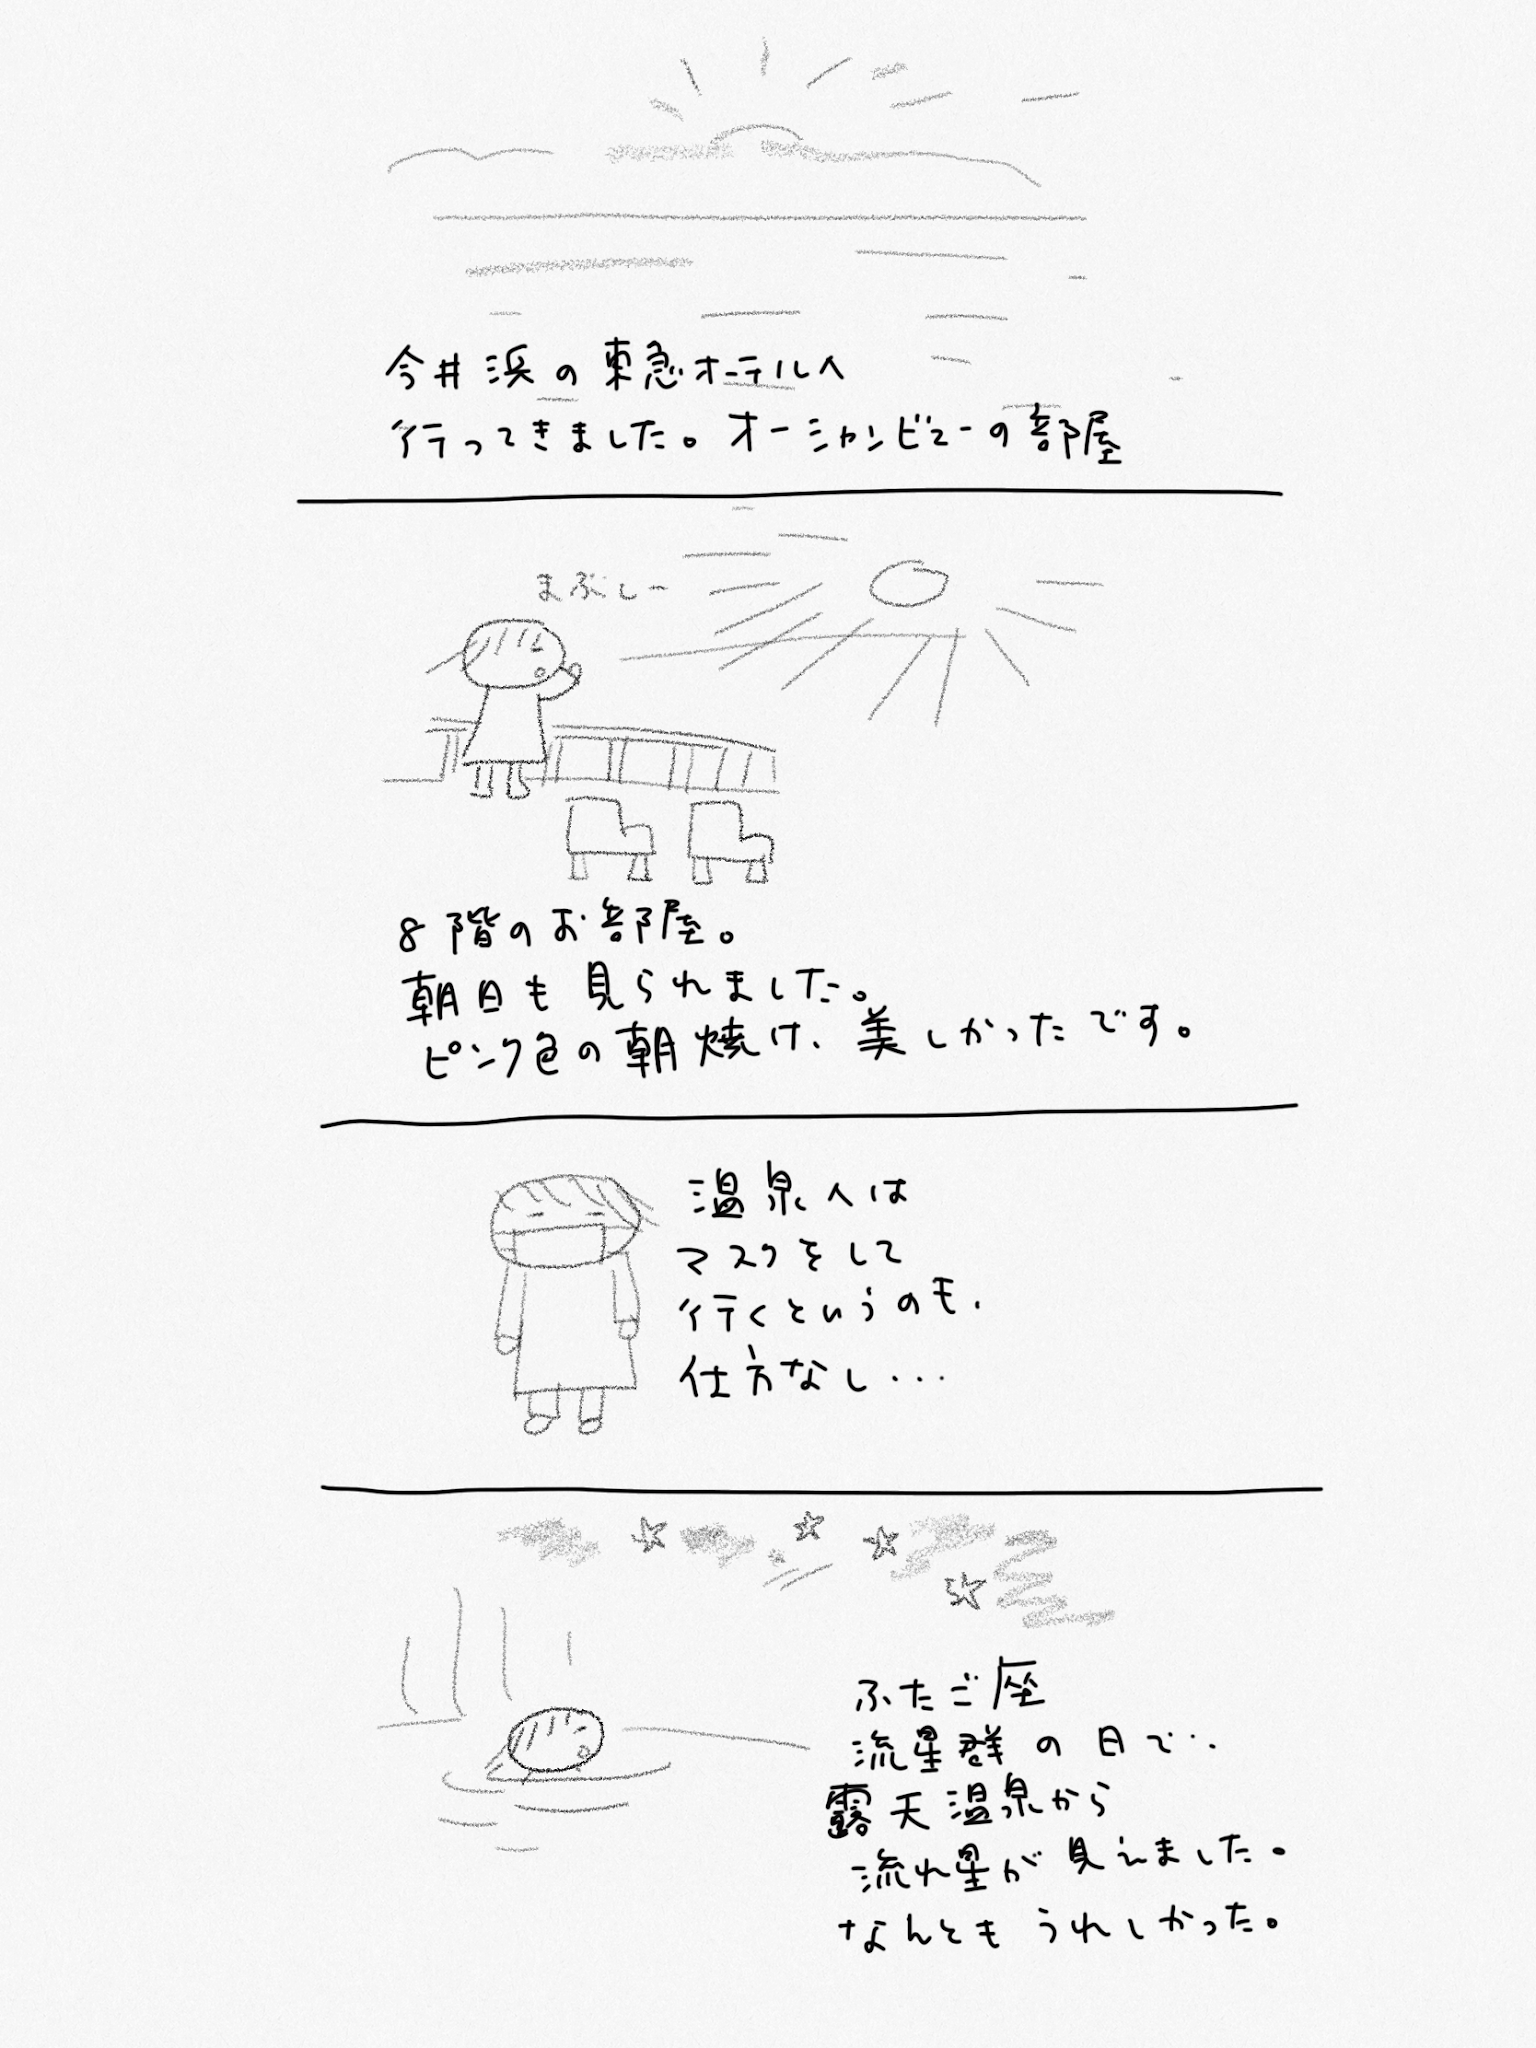 今井浜の東急ホテルへ
行ってきました。オーシャンビューの部屋
まぶしー
8階のお部屋。
朝日も見られました。
ピンク色の朝焼け、美しかったです。
温泉へは
マスクをして
行くというのも、
仕方なし...
ふたご座
流星群の日で..
露天温泉から
流れ星が見えました。
なんともうれしかった。